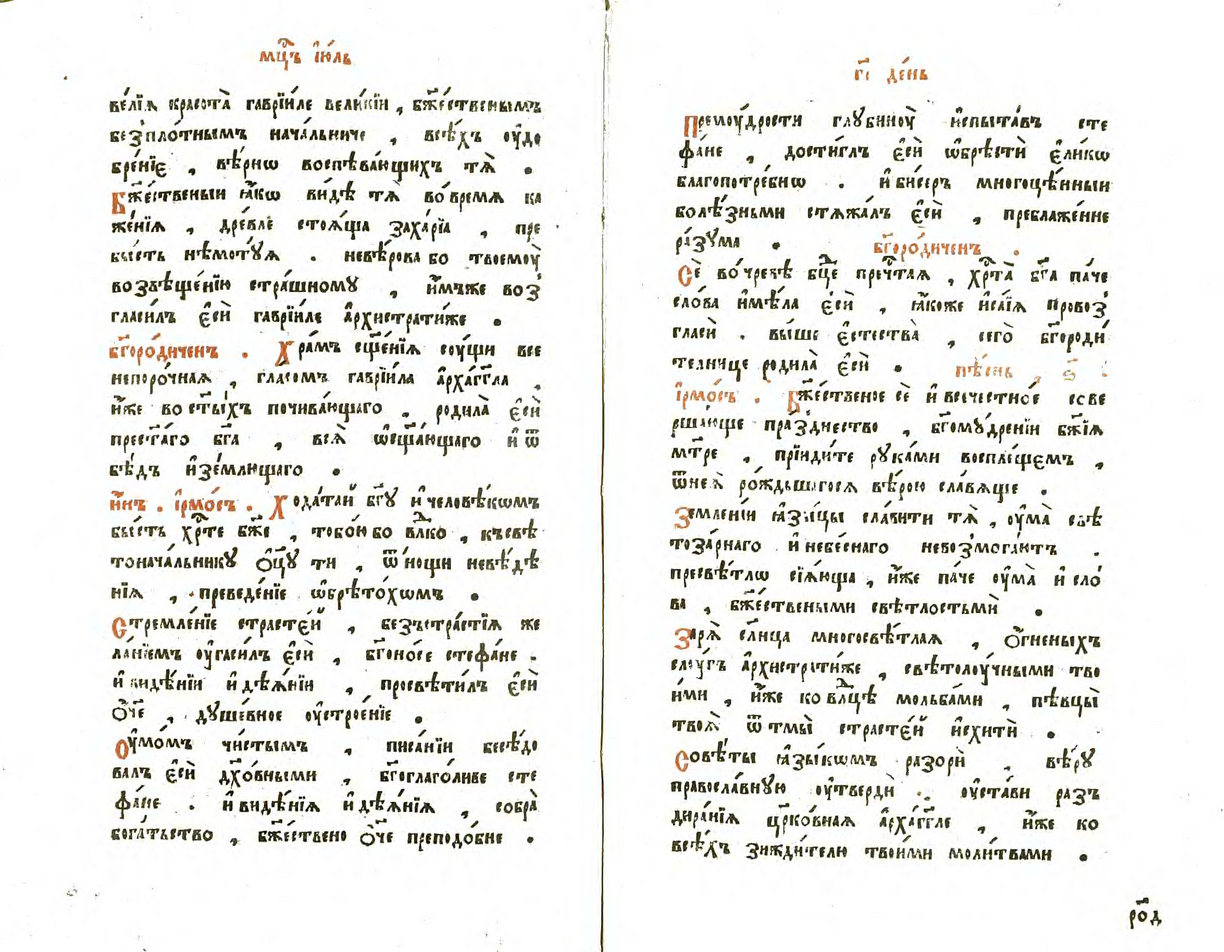 мц҃ъ і҆ю́ль
ве́лїѧ красота̀ гаврїи́ле вели́кїи , бж҃е́ственымъ
безпло́тнымъ нача́льниче , всѣ́хъ оу҆до
бре́нїе , вѣ́рнѡ воспѣва́ющихъ тѧ̀ .
Бж҃е́ственыи ꙗ҆́кѡ ви́дѣ тѧ̀ во вре́мѧ ка
же́нїѧ , дре́вле стоѧ́ща заха́рїа , пре
бы́сть нѣмо́тꙋѧ . невѣ́рова бо твоемоу̀
возвѣще́нїю стра́шномꙋ , и҆́мъже воз
гласи́лъ є҆сѝ гаврїи́ле а҆рхистрати́же .
бг҃оро́диченъ . Хра́мъ сщ҃е́нїѧ соу́щи все
непоро́чнаѧ , гла́сомъ гаврїи́ла а҆рха́гг҃ла ,
и҆́же во ст҃ы́хъ почива́ющаго . родила̀ є҆сѝ
прест҃а́го бг҃а , всѧ̀ ѡ҆сщ҃а́ющаго и҆ ѿ
бѣ́дъ и҆зе́млющаго .
и҆́нъ . і҆рмо́съ . Хода́таи бг҃ꙋ и҆ человѣ́кѡмъ
бы́сть хр҃те́ бж҃е , тобо́ю бо влⷣко , къ свѣ
тонача́льникꙋ ѻ҆ц҃ꙋ ти , ѿ но́щи невѣ́дѣ
нїѧ , преведе́нїе ѡ҆брѣто́хомъ .
Стремле́нїе страсте́и , безъстра́стїѧ же
ла́нїемъ оу҆гаси́лъ є҆сѝ , бг҃оно́се стефа́не .
и҆ ви́дѣнїи и҆ дѣѧ́нїи , просвѣти́лъ є҆сѝ
ѻ҆́ч҃е , дꙋше́вное оу҆строе́нїе .
Оу҆мо́мъ чи́стымъ , писа́нїи бесѣ́до
валъ є҆сѝ дх҃о́вными , бг҃оглаго́ливе сте
фа́не . и҆ ви́дѣнїѧ и҆ дѣѧ́нїѧ , собра̀
бога́тьство , бж҃е́ствено ѻ҆́ч҃е преподо́бне .
г҃і де́нь
Премоу́дрости глꙋбиноу̀ и҆спыта́въ сте
фа́не , дости́глъ є҆сѝ ѡ҆брѣстѝ є҆ли́кѡ
благопотре́бнѡ . и҆ би́серъ многоцѣ́нныи
болѣ́зньми стѧжа́лъ є҆сѝ , преблаже́нне
ра́зꙋма . бг҃оро́диченъ .
Сѐ во чре́вѣ бц҃е пречⷭ҇таѧ , хр҃та̀ бг҃а па́че
сло́ва и҆мѣ́ла є҆сѝ , ꙗ҆́коже и҆са́їѧ провоз
гласѝ . вы́ше є҆стества̀ , сего̀ бг҃ороди
телнице родила̀ є҆сѝ . пѣ́снь , ѕ҃ .
і҆рмо́съ . Бж҃е́ственое сѐ и҆ всечестно́е сове
рша́юще пра́зднество , бг҃омꙋ́дренїи бж҃їѧ
мт҃ре , прїиди́те рꙋка́ми воспле́щемъ ,
ѿ неѧ̀ ро́ждьшагосѧ вѣ́рою сла́вѧще .
Земле́нїи ꙗ҆зы́цы сла́вити тѧ̀ , оу҆ма̀ свѣ
тоза́рнаго и҆ небе́снаго невозмога́ютъ .
пресвѣ́тлѡ сїѧ́юща , и҆́же па́че оу҆ма̀ и҆ сло́
ва , бж҃е́ствеными свѣ́тлостьмѝ .
Зарѧ̀ сл҃нца многосвѣ́тлаѧ , ѻ҆́гненыхъ
слоу́гъ а҆рхистрати́же , свѣтолоу́чными тво
и́ми , и҆́же ко влⷣцѣ мольба́ми , пѣвцы̀
твоѧ̀ ѿ тмы̀ страсте́и и҆схитѝ .
Совѣ́ты ꙗ҆зы́кѡмъ разорѝ , вѣ́рꙋ
правосла́внꙋю оу҆твердѝ . оу҆ста́ви раз
дира́нїѧ цр҃ко́внаѧ а҆рха́гг҃ле , и҆́же ко
всѣ́хъ зижди́телю твои́ми моли́твами .
ро́д